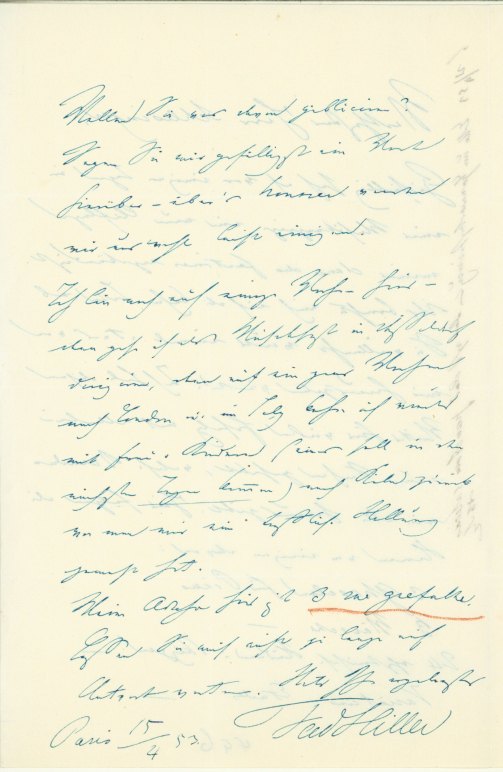 Wollen Sie was davon publiciren?
Sagen Sie mir gefälligst ein Wort
hierüber – über's Honorar werden
wir uns wohl leicht einigen.
Ich bin noch auf einige Wochen hier –
dann gehe ich das Musikfest in Düsseldorf
dirigiren, dann auf ein paar Wochen
nach London u. im July kehre ich wieder
mit Frau u Kindern (eines soll in den
nächsten Tagen kommen) nach Köln zurück
wo man mir eine Stellung
gemacht hat.
Meine Adresse hier ist 3 rue grefulhe.
Lassen Sie mich nicht zu lange auf
Antwort warten. Stets Ihr ergebenster
Ferd Hiller
Paris 15/4 53